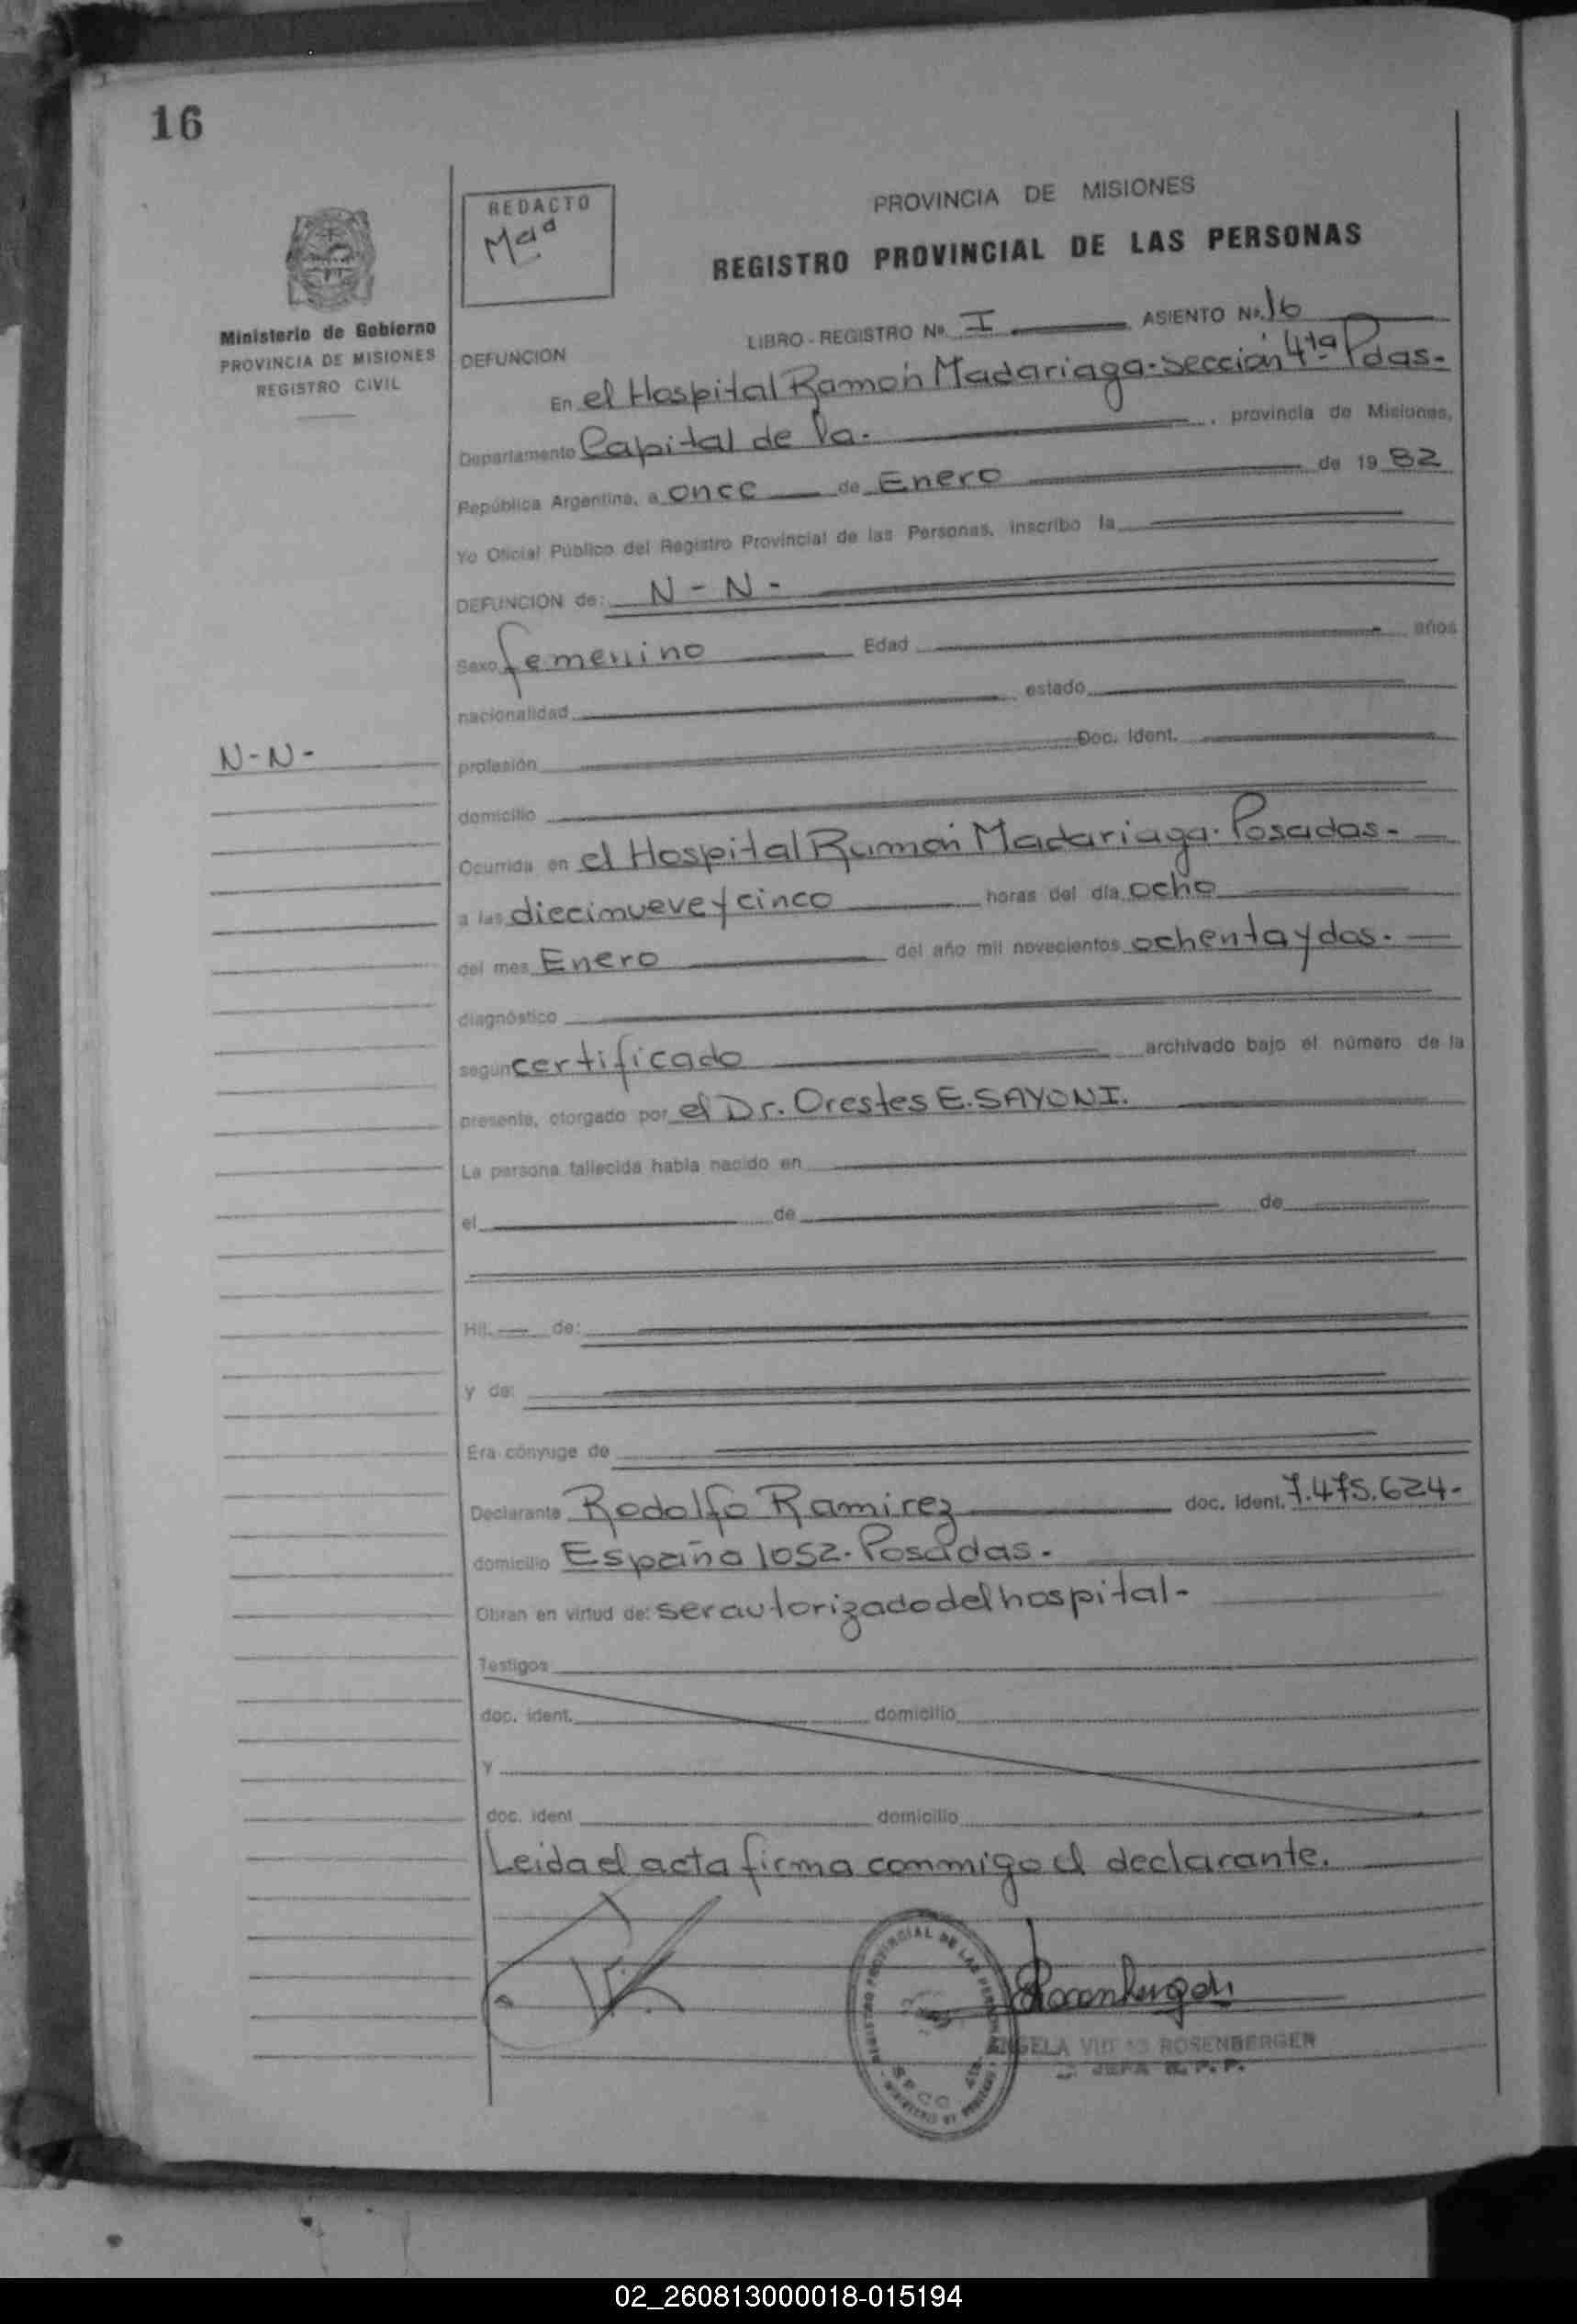 16
REDACTO
PROVINCIA DE MISIONES
REGISTRO PROVINCIAL DE LAS PERSONAS
Ministerio de Gobierno
PROVINCIA DE MISIONES
REGISTRO CIVIL
LIBRO - REGISTRO Nº. I ASIENTO Nº. 16
DEFUNCION
En el Hospital Ramón Madariaga-sección 4ta Pdas-
Departamento Capital de la. , provincia de Misiones,
República Argentina, a once de Enero de 19 82
Yo Oficial Público del Registro Provincial de las Personas, inscribo la
DEFUNCION de: N - N -
Sexo femenino Edad años
nacionalidad estado
N-N-
profesión Doc. Ident.
domicilio
Ocurrida en el Hospital Ramón Madariaga. Posadas-
a las diecinueve y cinco horas del día ocho
del mes Enero del año mil novecientos ochenta y dos.
diagnóstico
según certificado archivado bajo el número de la
presente, otorgado por el Dr. Orestes E. SAYONI.
La persona fallecida había nacido en
el de de
Hij. de:
y de:
Era cónyuge de
Declarante Rodolfo Ramirez doc. ident. 7.475.624-
domicilio España 1052. Posadas.
Obran en virtud de: ser autorizado del hospital-
Testigos
doc. ident. domicilio
y
doc. ident domicilio
Leida el acta firma conmigo el declarante.
REGISTRO PROVINCIAL DE LAS PERSONAS
ROSENBERGER
JEFA R. P. P.
02_260813000018-015194